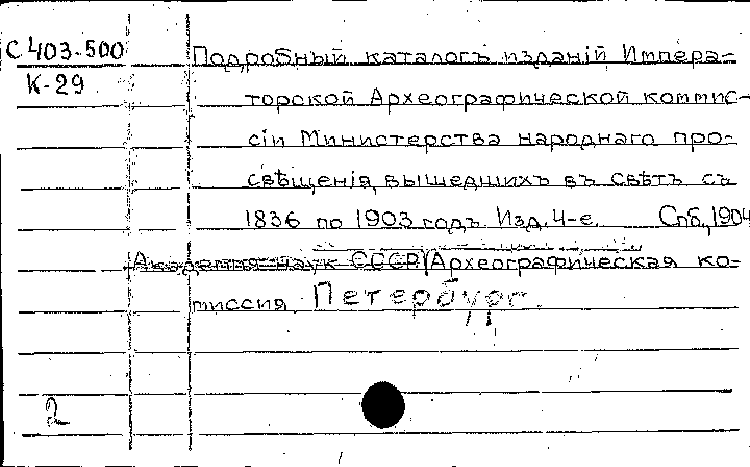 С 403-500
К-29
Подробный каталогъ изданій Импера-
торской Археографической коммис-
сіи Министерства народнаго про-
свѣщенія, вышедшихъ въ свѣтъ съ
1836 по 1903 годъ. Изд. 4-е. Спб., 1904
Академия наук СССР Археографическая ко-
миссия. Петербург.
2